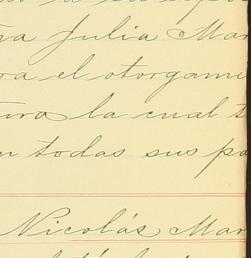 ra Julia Mar
ra el otorgame
tura la cual t
n todas sus pa
Nicolás Mar